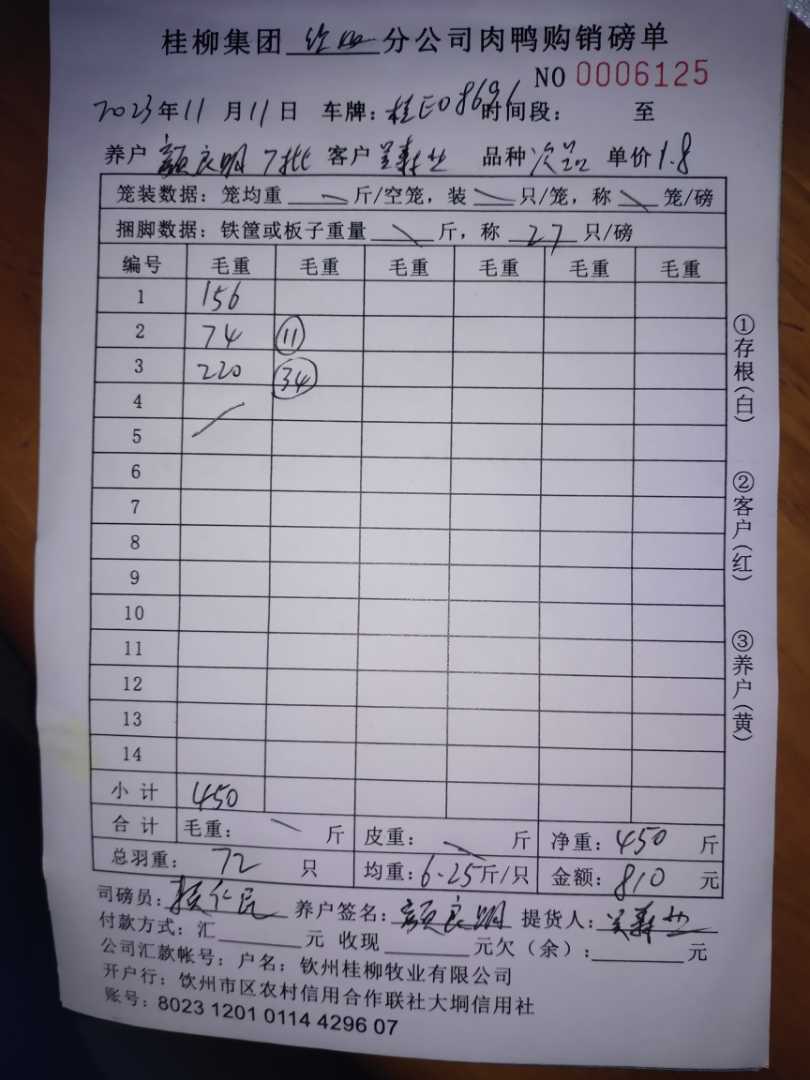 桂柳集团 分公司肉鸭购销磅单
NO 0006125
2023年11月11日 车牌:桂E08696 时间段: 至
养户 颜良明 7批 客户 品种 次品 单价 1.8
笼装数据:笼均重 斤/空笼,装 只/笼,称 笼/磅
捆脚数据:铁筐或板子重量 斤,称 27 只/磅
编号 毛重 毛重 毛重 毛重 毛重 毛重
1 156
2 74 11
3 220 34
4
5
6
7
8
9
10
11
12
13
14
小计 450
合计 毛重: 斤 皮重: 斤 净重:450 斤
总羽重: 72 只 均重:6.25斤/只 金额:810 元
司磅员: 养户签名:颜良明 提货人:
付款方式:汇 元 收现 元欠(余): 元
公司汇款帐号:户名:钦州桂柳牧业有限公司
开户行:钦州市区农村信用合作联社大垌信用社
账号:8023 1201 0114 4296 07
①存根(白)
②客户(红)
③养户(黄)